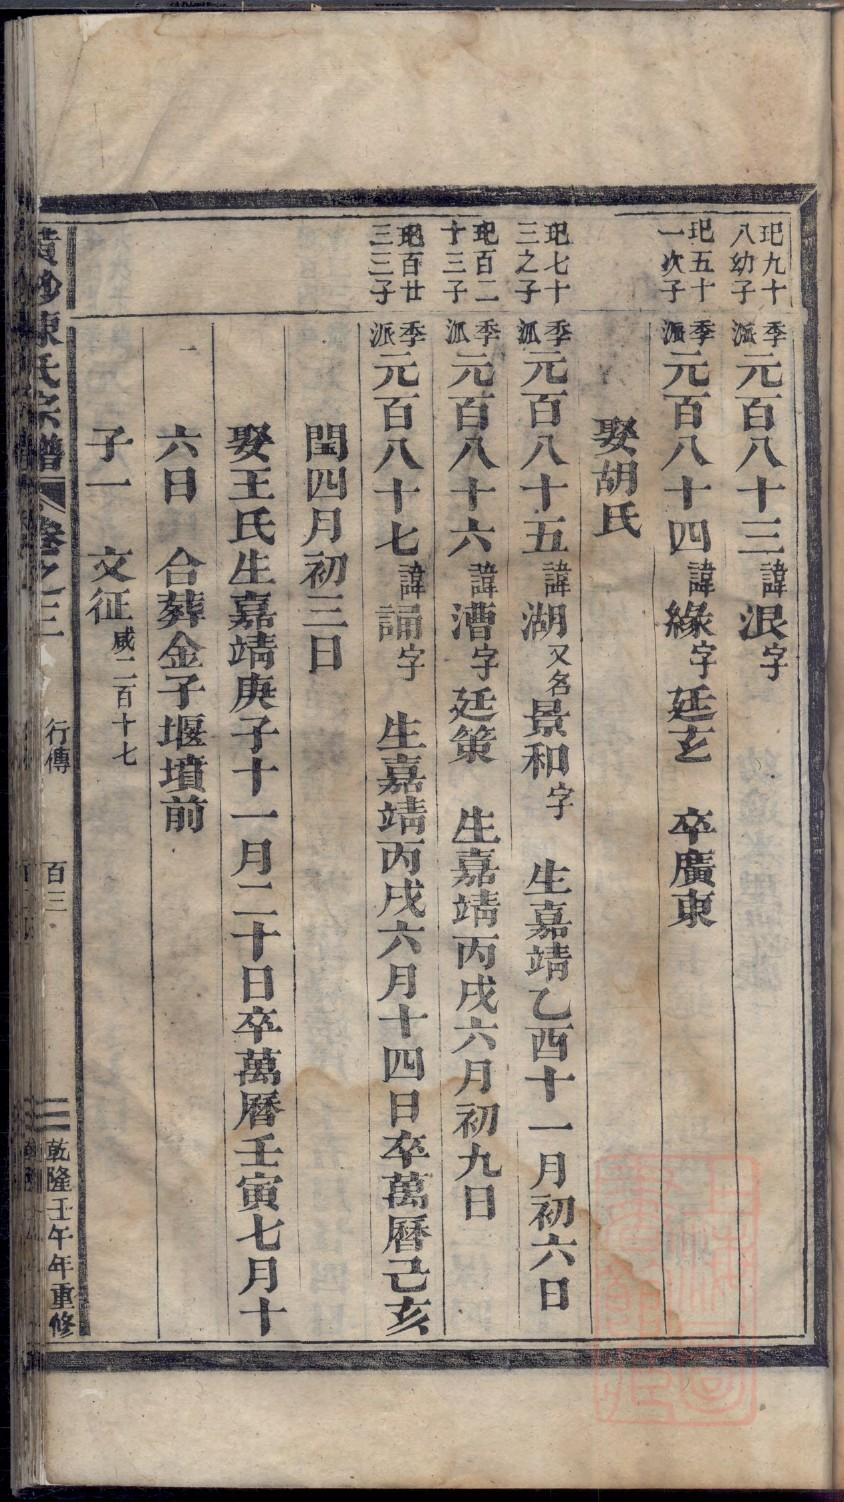 玘九十
八幼子
季派元百八十三諱泯字
玘五十
一次子
季派元百八十四諱緣字廷玄 卒廣東
娶胡氏
玘七十
三之子
季派元百八十五諱湖又名景和字 生嘉靖乙酉十一月初六日
玘百二
十三子
季派元百八十六諱漕字廷策 生嘉靖丙戌六月初九日
玘百廿
三三子
季派元百八十七諱誦字 生嘉靖丙戌六月十四日卒萬曆己亥
閏四月初三日
娶王氏生嘉靖庚子十一月二十日卒萬曆壬寅七月十
六日 合葬金子堰墳前
子一 文征咸二百十七
陳氏宗譜 卷之三 行傳 百三 乾隆壬午年重修